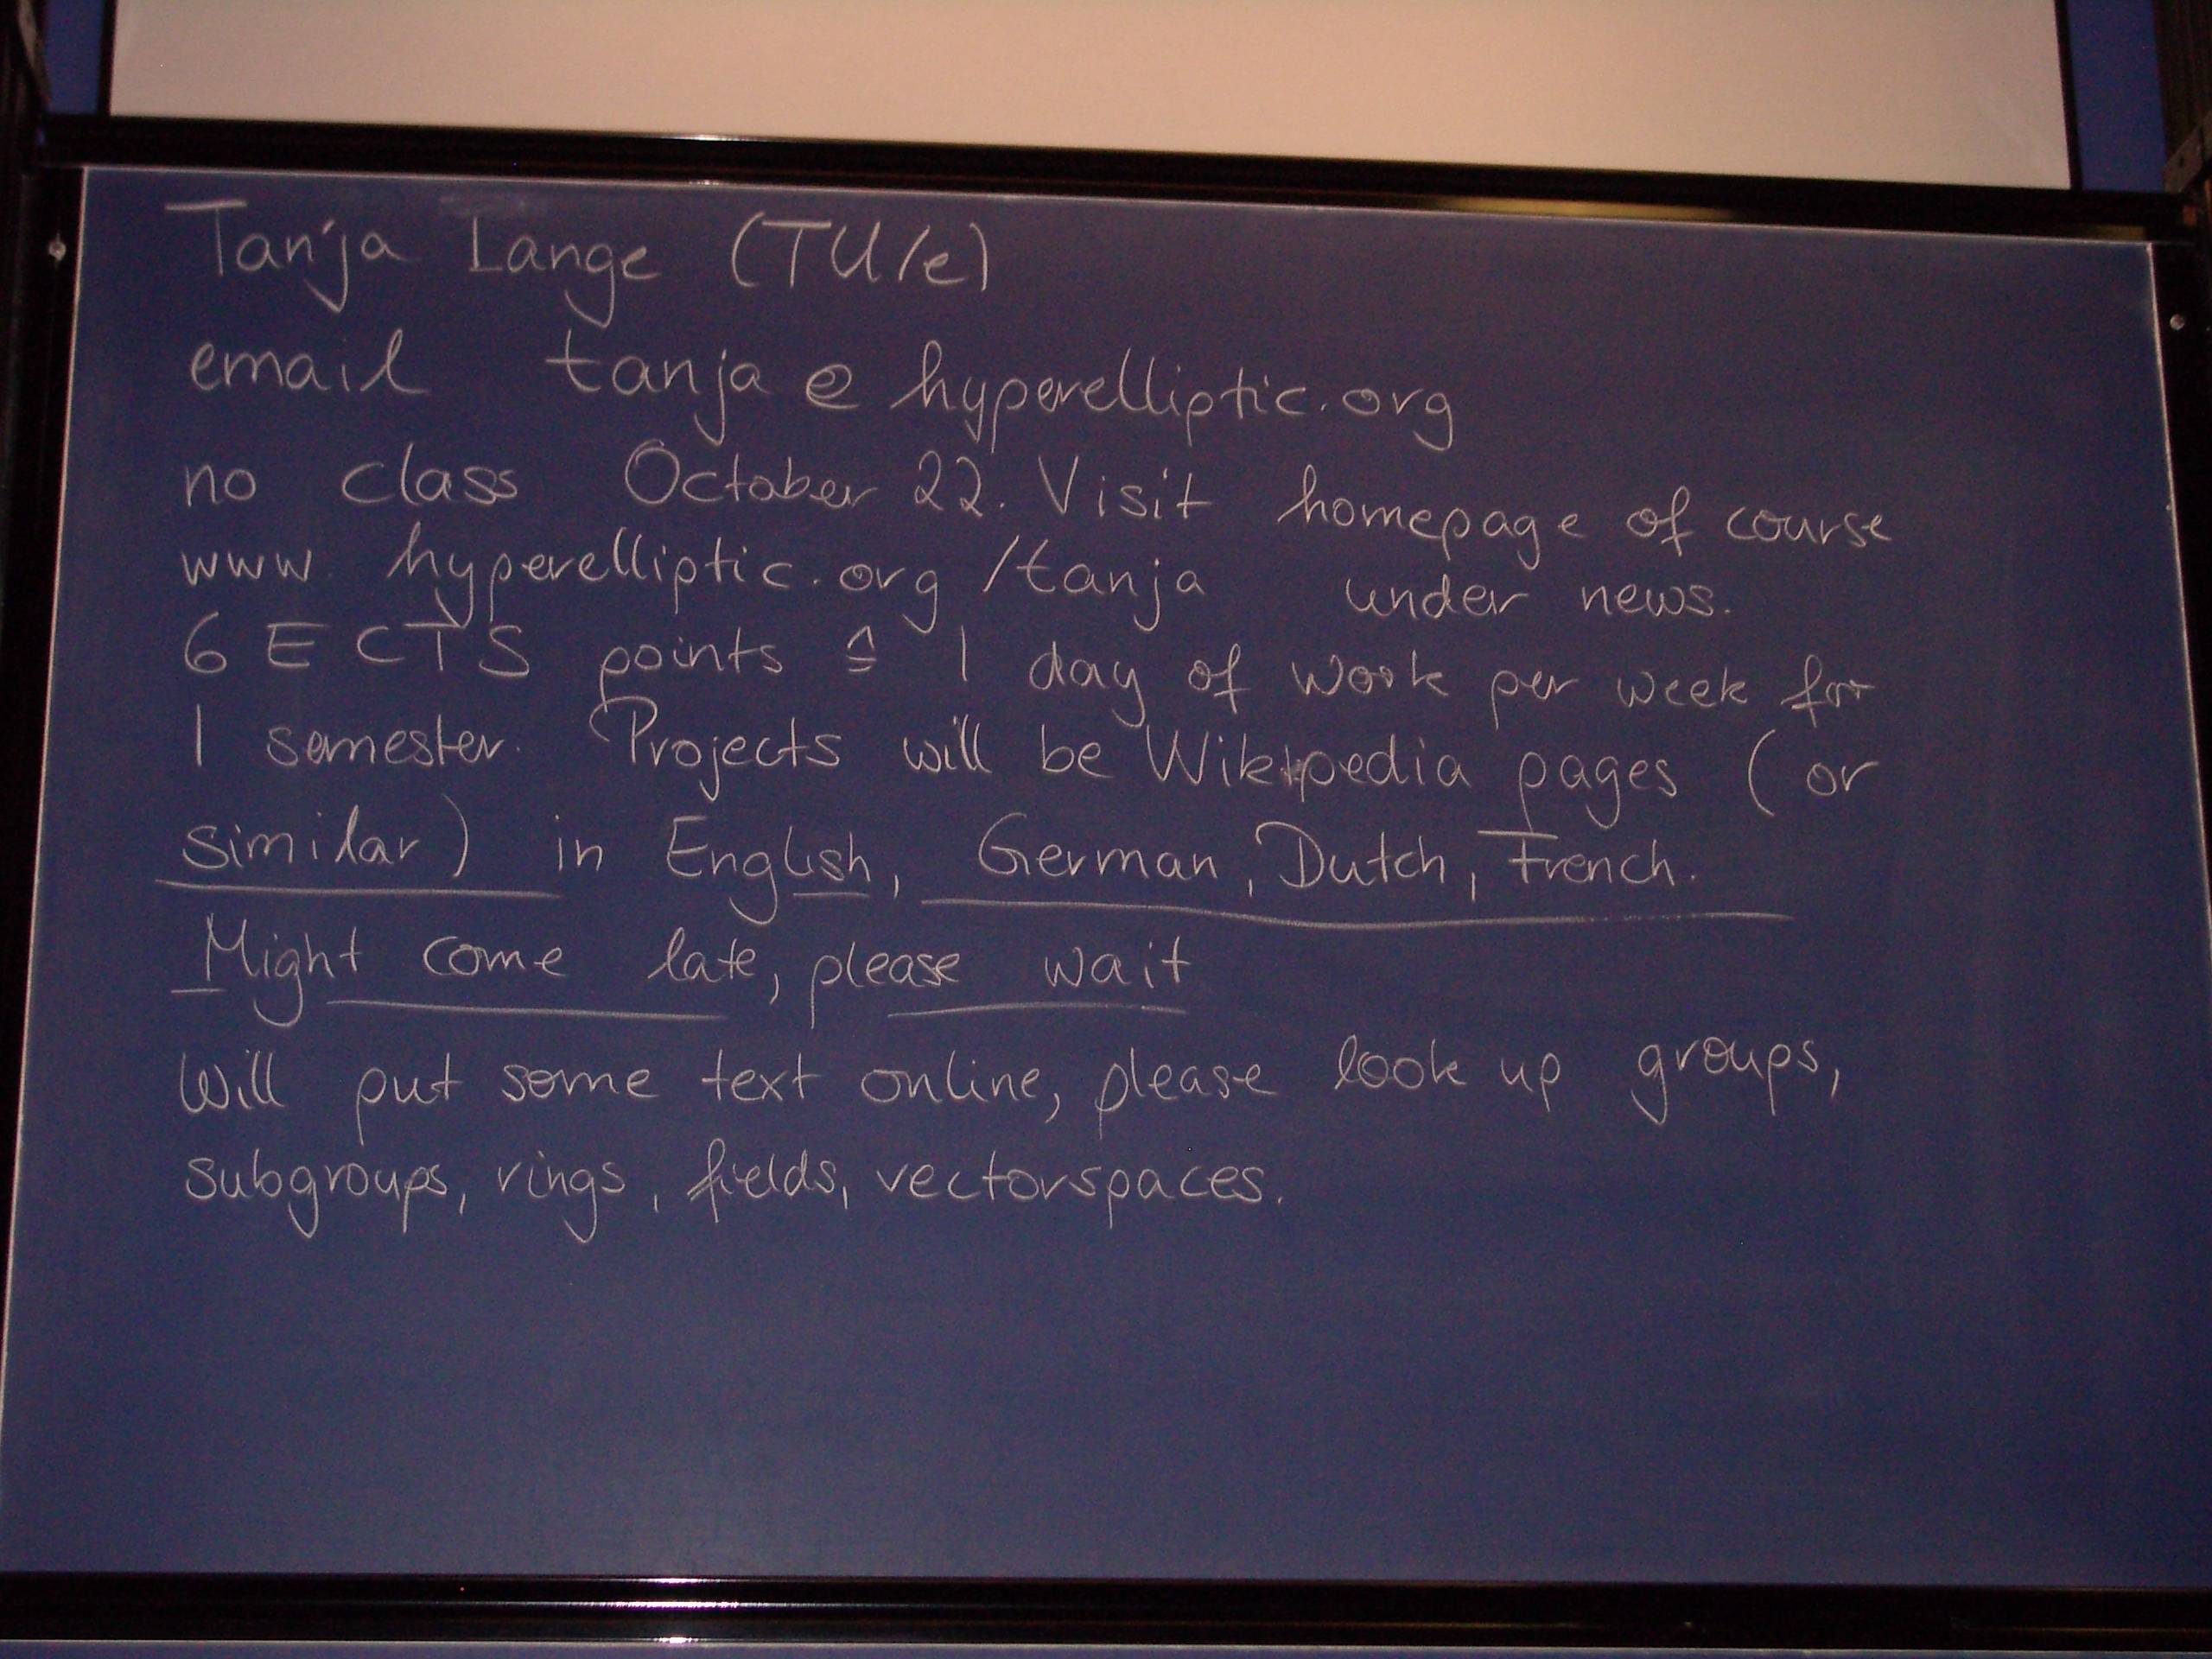 Tanja Lange (TU/e)
email tanja@hyperelliptic.org
no class October 22. Visit homepage of course
www.hyperelliptic.org/tanja under news.
6 ECTS points ≙ 1 day of work per week for
1 semester. Projects will be Wikipedia pages (or
similar) in English, German, Dutch, French.
Might come late, please wait
Will put some text online, please look up groups,
subgroups, rings, fields, vectorspaces.